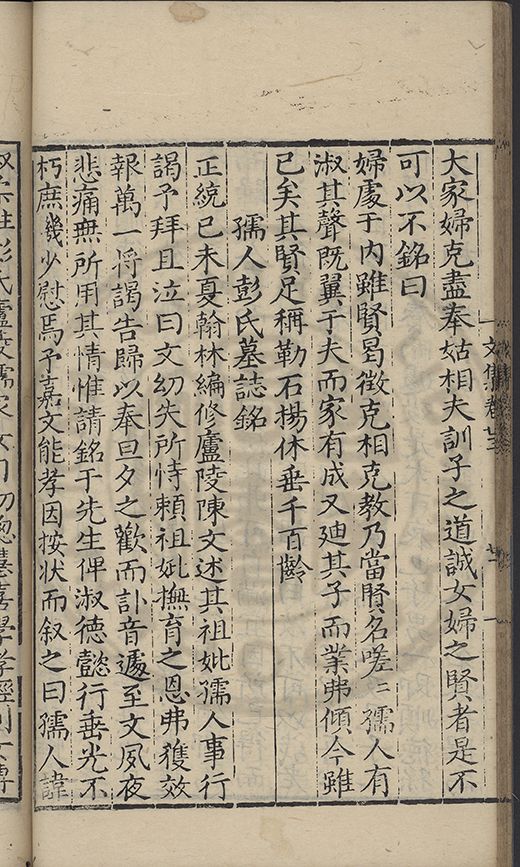 大家婦克盡奉姑相夫訓子之道誠女婦之賢者是不
可以不銘曰
婦處于内雖賢曷徵克相克教乃當賢名嗟嗟孺人有
淑其聲既翼于夫而家有成又廸其子而業弗傾今雖
已矣其賢足稱勒石揚休垂千百齡
孺人彭氏墓誌銘
正統己未夏翰林編修廬陵陳文述其祖妣孺人事行
謁予拜且泣曰文幼失所恃賴祖妣撫育之恩弗獲效
報萬一將謁告歸以奉旦夕之歡而訃音遽至文夙夜
悲痛無所用其情惟請銘于先生俾淑德懿行垂光不
朽庶幾少慰焉予嘉文能孝因按状而叙之曰孺人諱
文集卷